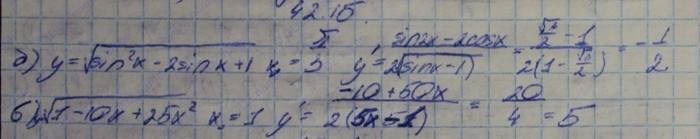 42.15.
б) y = √(sin²x - 2sinx + 1) x₀ = π/3 y' = (sin2x - 2cosx)/(2(sinx - 1)) = (√3/2 - 1)/(2(1 - √3/2)) = -1/2
б) √(1 - 10x + 25x²) x₀ = 1 y' = (-10 + 50x)/(2(5x - 1)) = 20/4 = 5